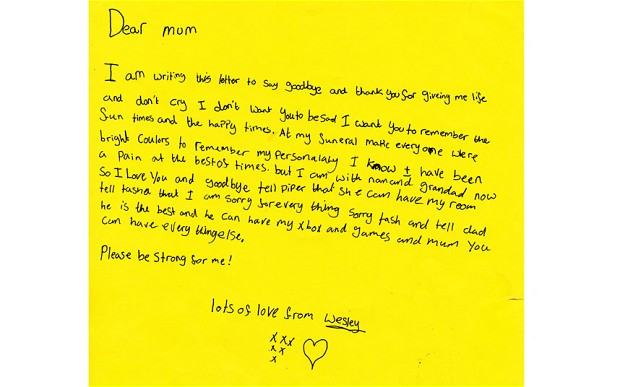 Dear mum
I am writing this letter to say goodbye and thank you for giveing me life
and don't cry I don't want you to be sad I want you to remember the
fun times and the happy times. At my funeral make everyone were
bright Coulors to remember my Personalaty I know I have been
a Pain at the best of times. but I am with nan and grandad now
So I Love You and goodbye tell Piper that she can have my room
tell tasha that I am sorry for every thing sorry tash and tell dad
he is the best and he can have my xbox and games and mum You
can have every thing else.
Please be Strong for me!
lots of love from Wesley
x x x
x x
x